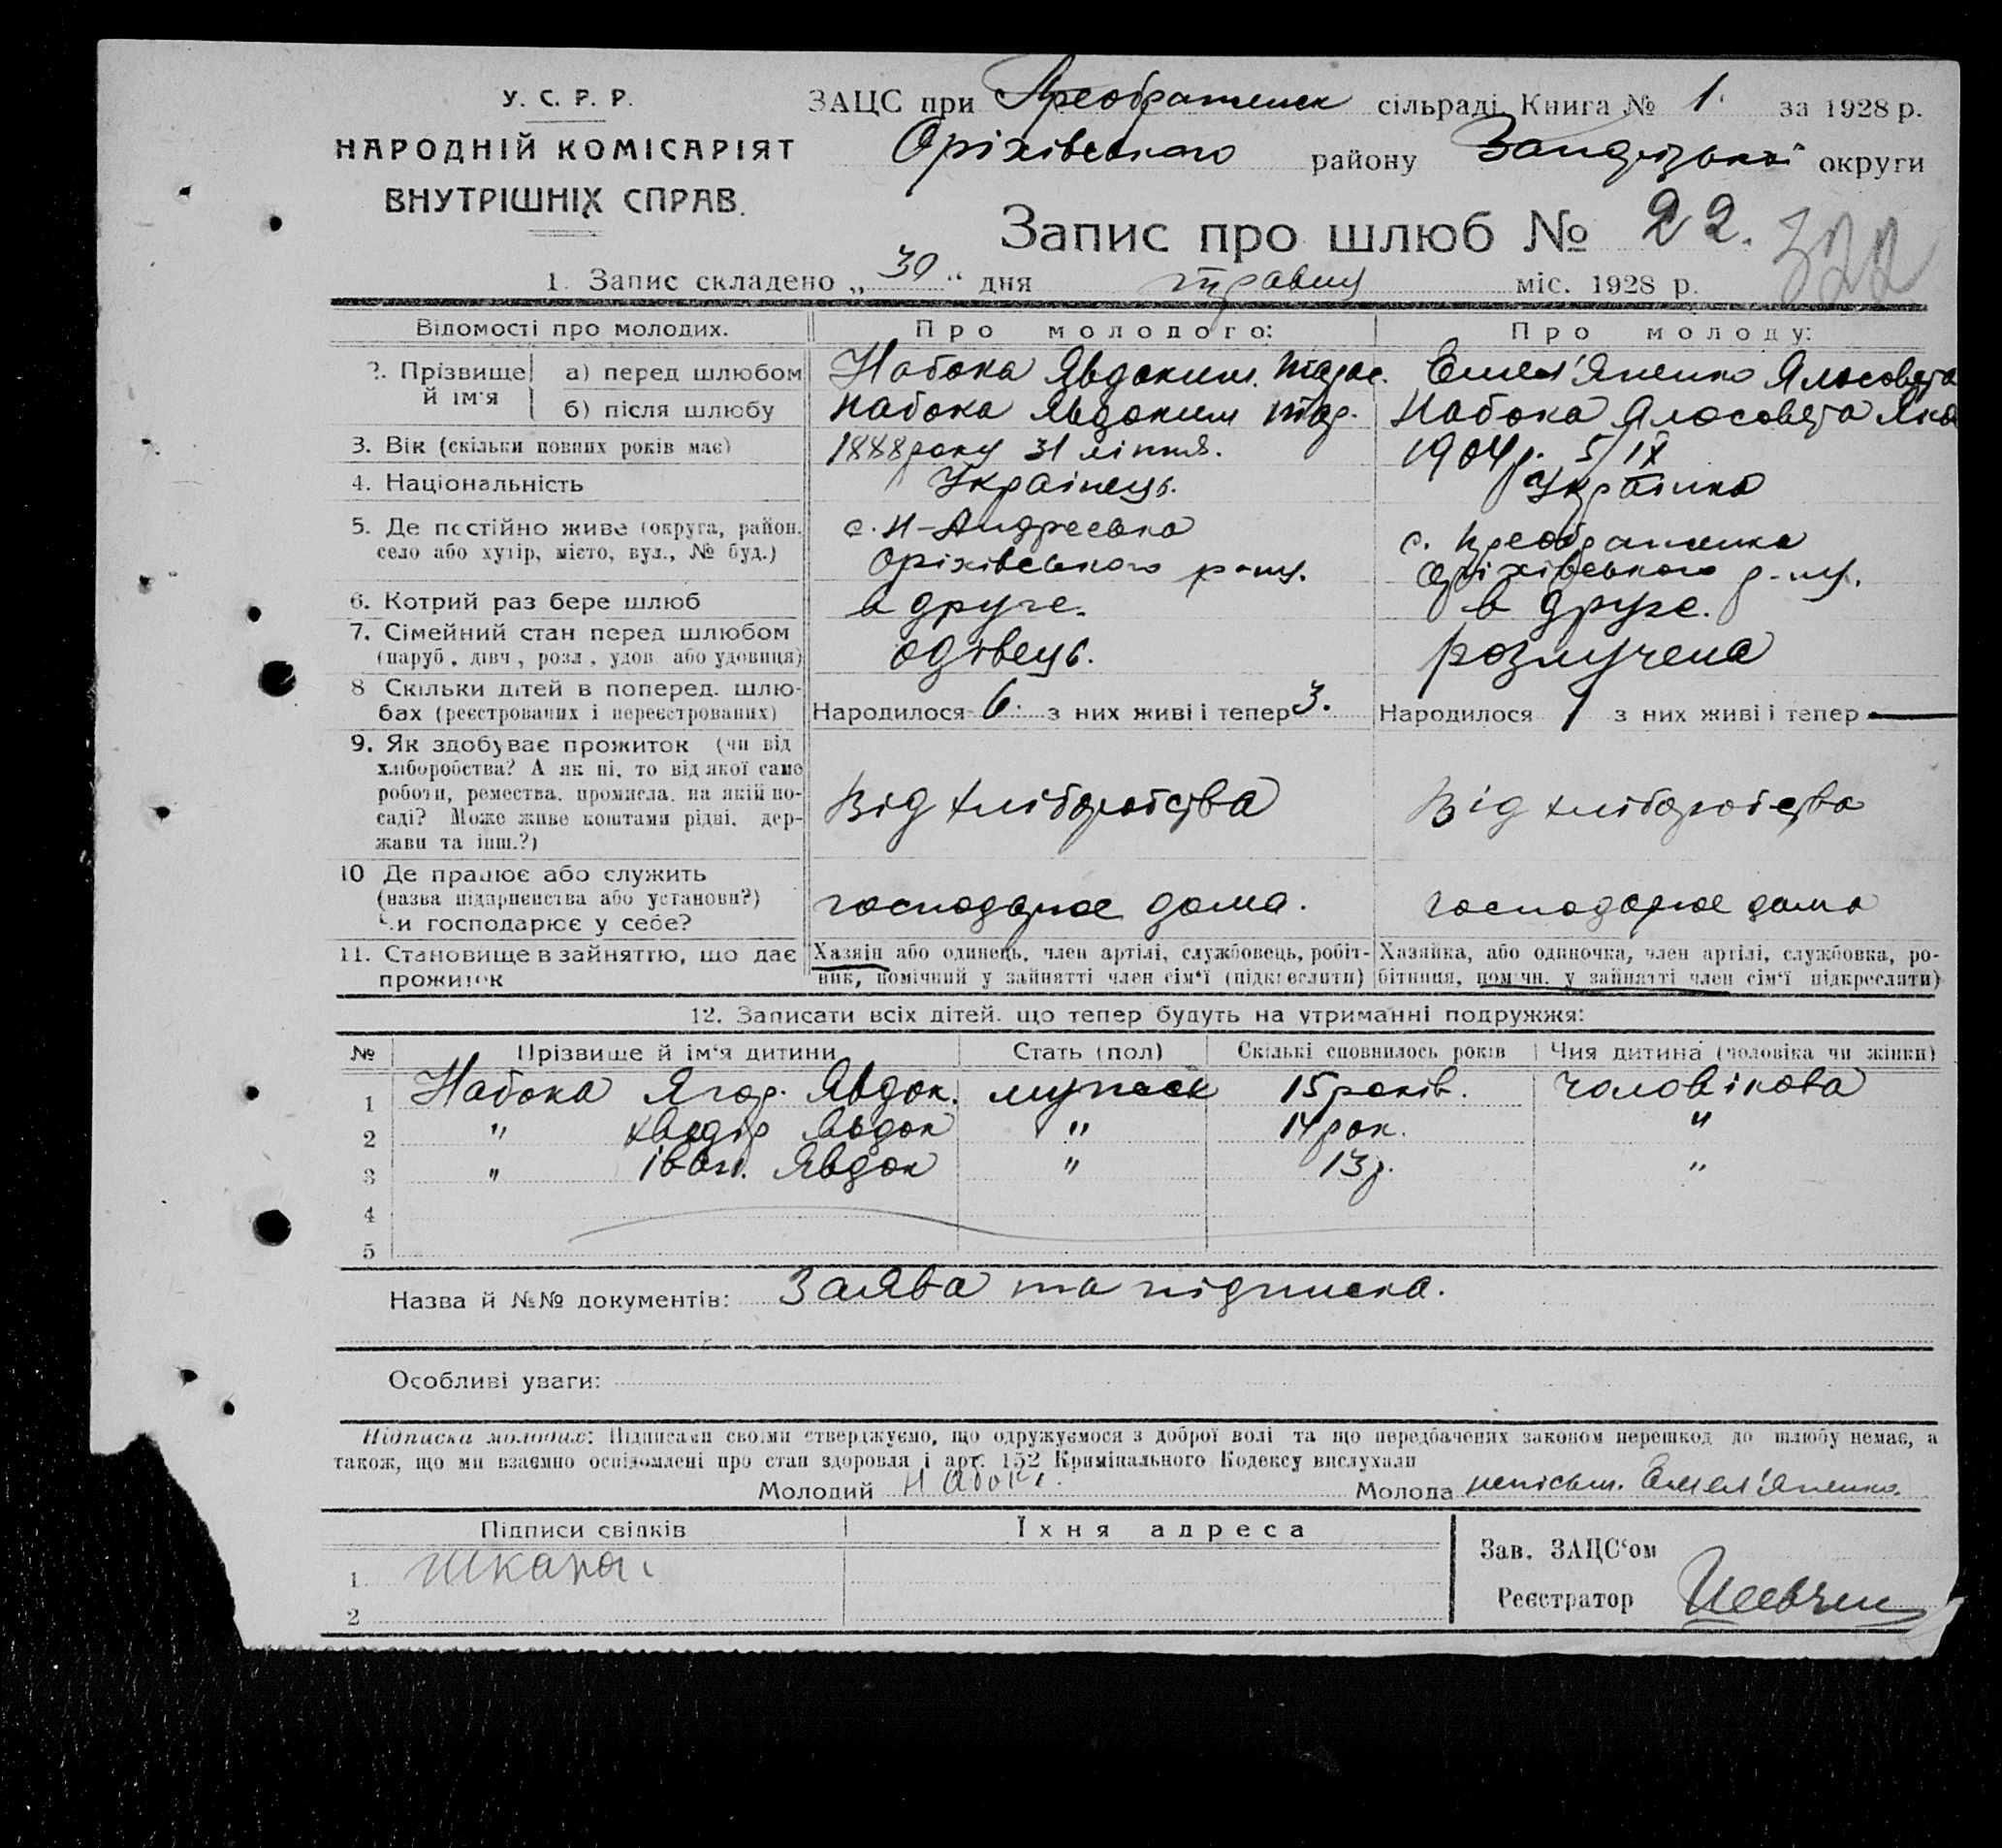 У. С. Р. Р.
НАРОДНІЙ КОМІСАРІЯТ
ВНУТРІШНІХ СПРАВ.
ЗАЦС при Преображенск сільраді Книга № 1 за 1928 р.
Оріхівського району округи
Запис про шлюб № 22.
322
1. Запис складено „30“ дня травня міс. 1928 р.
Відомості про молодих. Про молодого: Про молоду:
2. Прізвище й ім'я а) перед шлюбом Набока Явдоким. Тарас. Емел'яненко Ялисовета
б) після шлюбу Набока Явдоким Тар. Набока Ялосовета Яко
3. Вік (скільки повних років має) 1888 року 31 ліпня. 1904 р. 5/IX
4. Національність Українець. Українка
5. Де постійно живе (округа, район, с. Н-Андреевка с. Преображенка
село або хутір, місто, вул., № буд.) Оріхівського р-ну. Оріхівського р-ну.
6. Котрий раз бере шлюб в друге. в друге.
7. Сімейний стан перед шлюбом
(паруб., дівч., розл., удов. або удовиця) одівець. розлучена
8 Скільки дітей в поперед. шлю-
бах (реєстрованих і нереєстрованих) Народилося 6. з них живі і тепер 3. Народилося 1 з них живі і тепер —
9. Як здобуває прожиток (чи від
хліборобства? А як ні, то від якої само
роботи, ремества, промисла, на якій по-
саді? Може живе коштами рідні, дер-
жави та інш.?)
Від хліборобства Від хліборобства
10 Де працює або служить
(назва підприємства або установи?)
Чи господарює у себе?
господарює дома. господарює дома
11. Становище в зайняттю, що дає
прожиток
Хазяїн або одинець, член артілі, службовець, робіт-
ник, помічний у зайнятті член сім‘ї (підкреслити)
Хазяйка, або одиночка, член артілі, службовка, ро-
бітниця, помічн. у зайнятті член сім‘ї підкреслити)
12. Записати всіх дітей, що тепер будуть на утриманні подружжя:
№ Прізвище й ім‘я дитини Стать (пол) Скількі сповнилось років Чия дитина (чоловіка чи жінки)
1 Набока Ягор. Явдок. мужеск 15 років. чоловікова
2 " Хведір Явдок " 14 рок. "
3 " Іван. Явдок " 13 р. "
4
5
Назва й №№ документів: Заява та підписка.
Особливі уваги:
Підписка молодих: Підписами своіми стверджуємо, що одружуємося з доброї волі та що передбачених законом перешкод до шлюбу немає, а
також, що ми взаємно освідомлені про стан здоровля і арт. 152 Кримінального Кодексу вислухали
Молодий Набока. Молода непісьм. Емел'яненко.
Підписи свідків Їхня адреса
1.
2
Зав. ЗАЦС‘ом
Реєстратор